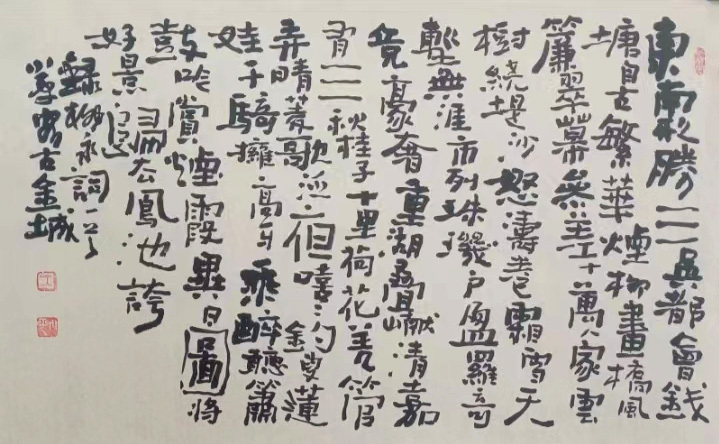 東南形勝三吳都會錢
塘自古繁華煙柳畫橋風
簾翠幕參差十萬人家雲
樹繞堤沙怒濤卷霜雪天
塹無涯市列珠璣戶盈羅綺
競豪奢重湖疊巘清嘉
有三秋桂子十里荷花羌管
弄晴菱歌泛夜嘻嘻釣叟蓮
娃千騎擁高牙乘醉聽簫
鼓吟賞煙霞異日圖將
好景歸去鳳池誇
錄柳永詞一首
古金城